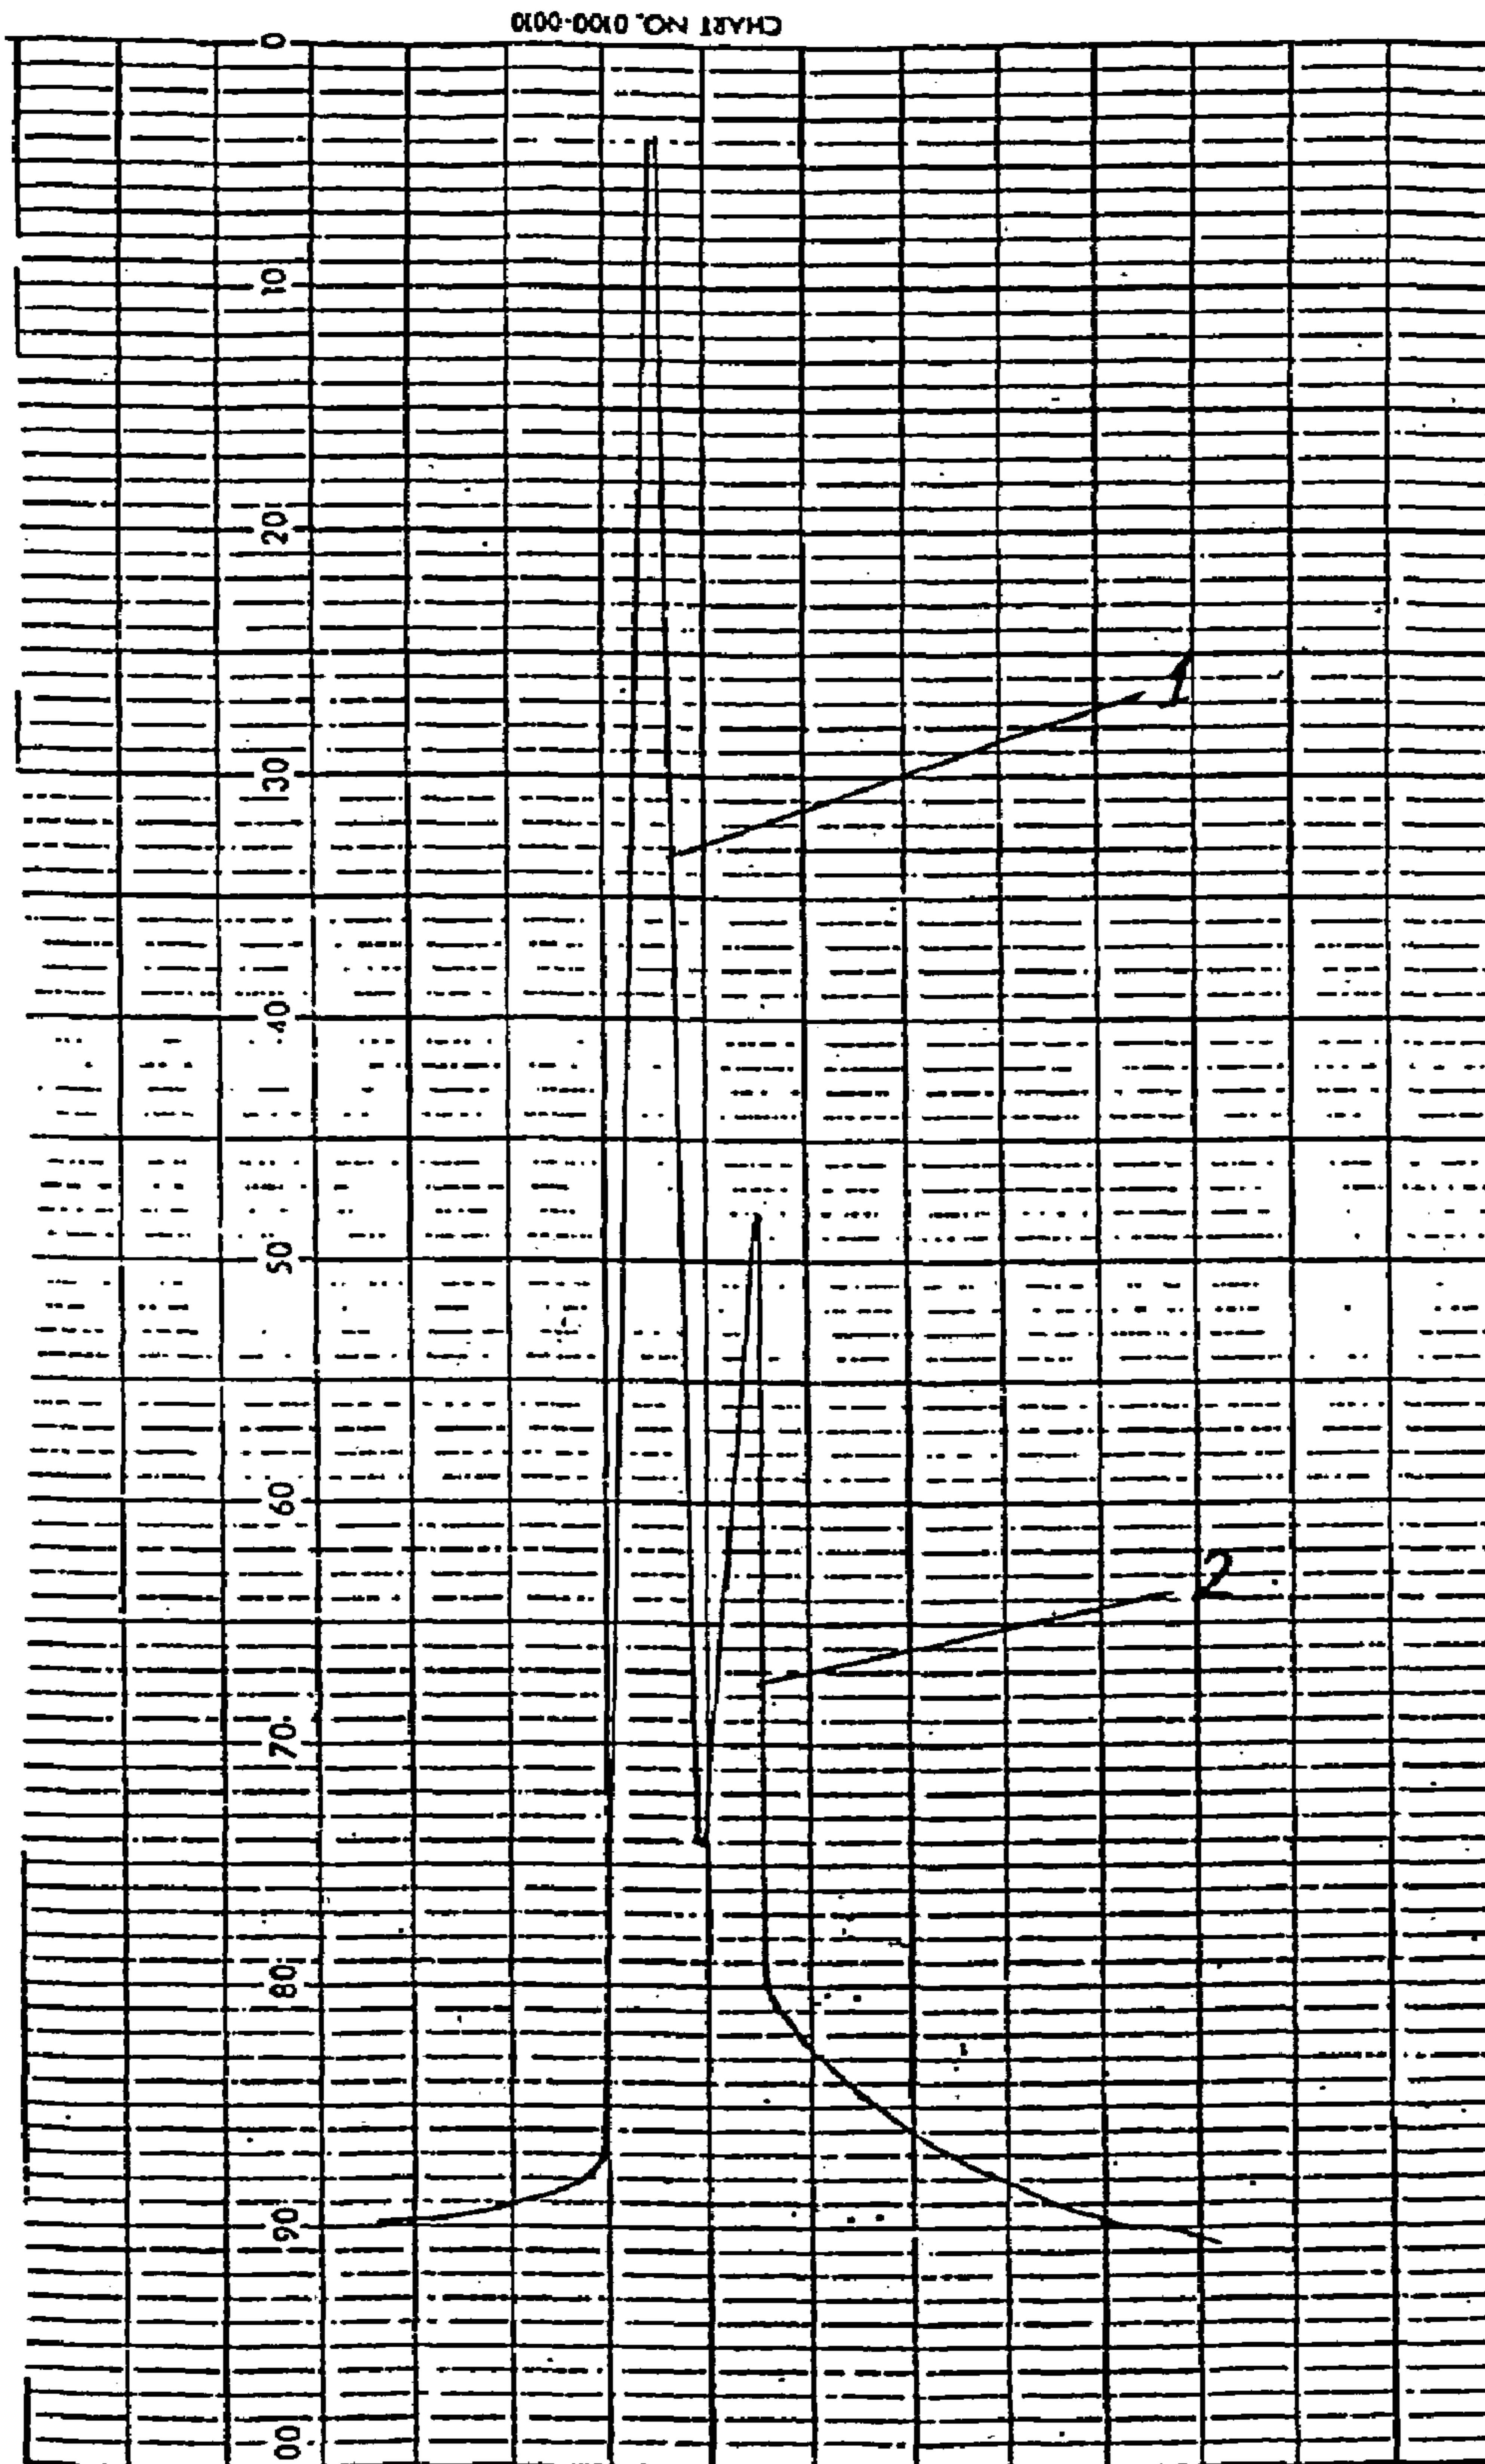 CHART NO. 0100-0010
0
10
20
30
40
50
60
70
80
90
00
1
2